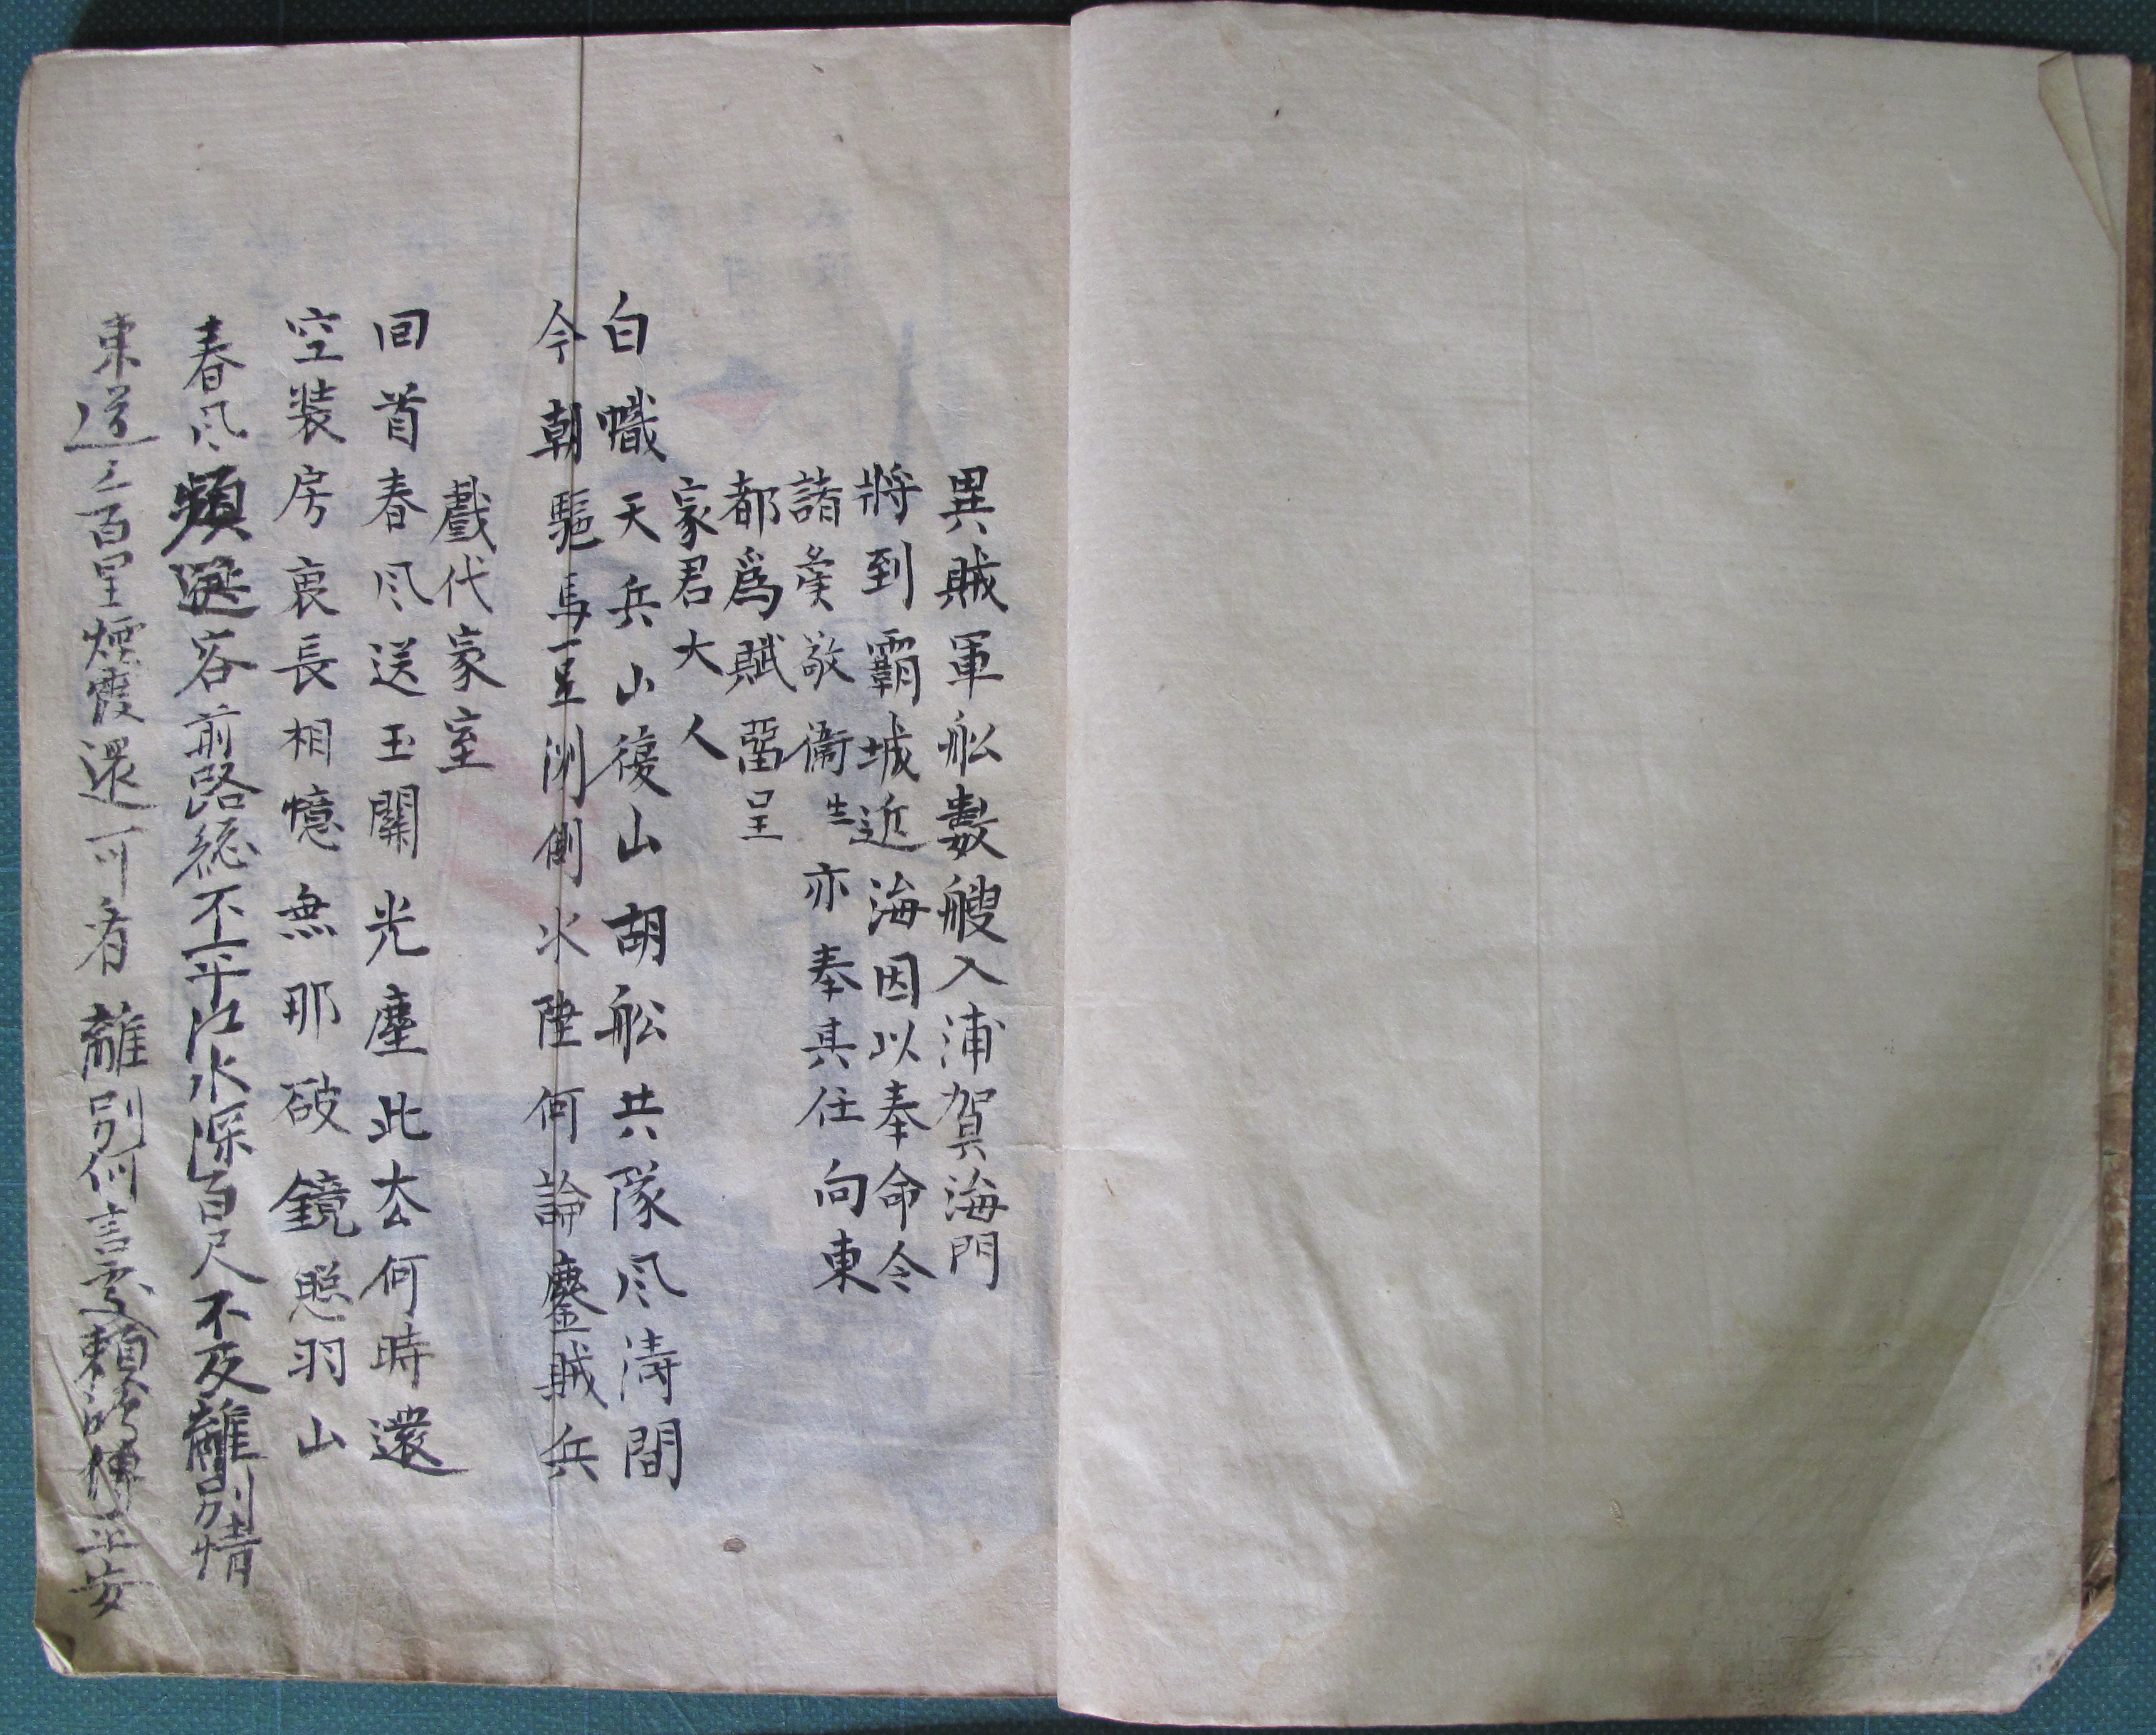 異賊軍舩數艘入浦賀海門
將到霸城近海因以奉命令
諸侯敬衞生亦奉其任向東
都爲賦留呈
家君大人
白幟天兵山復山胡舩共隊风濤間
今朝驅馬一星渕側水陸何論鏖賊兵
戲代家室
回首春风送玉關光塵此去何時還
空装房裏長相憶無那破鏡照羽山
春风頻送客前路總不平江水深百尺不及離別情
東道三百里煙霞還可看離別何言憂頼